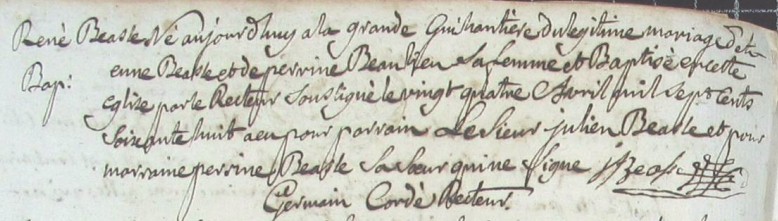 René Beasse Né aujourd'huy a la grande Guihantière du legitime mariage d'eti-
Bap: enne Beasse et de perrine Beaulieu Sa femme et Baptisé en cette
eglise par le Recteur Soussigné le vingt quatre Avril mil Sept Cents
Soixante huit a eu pour parrain Le Sieur julien Beasse et pour
marraine perrine Beasse Sa Sœur qui ne Signe J Beasse
Germain Cordé Recteur.